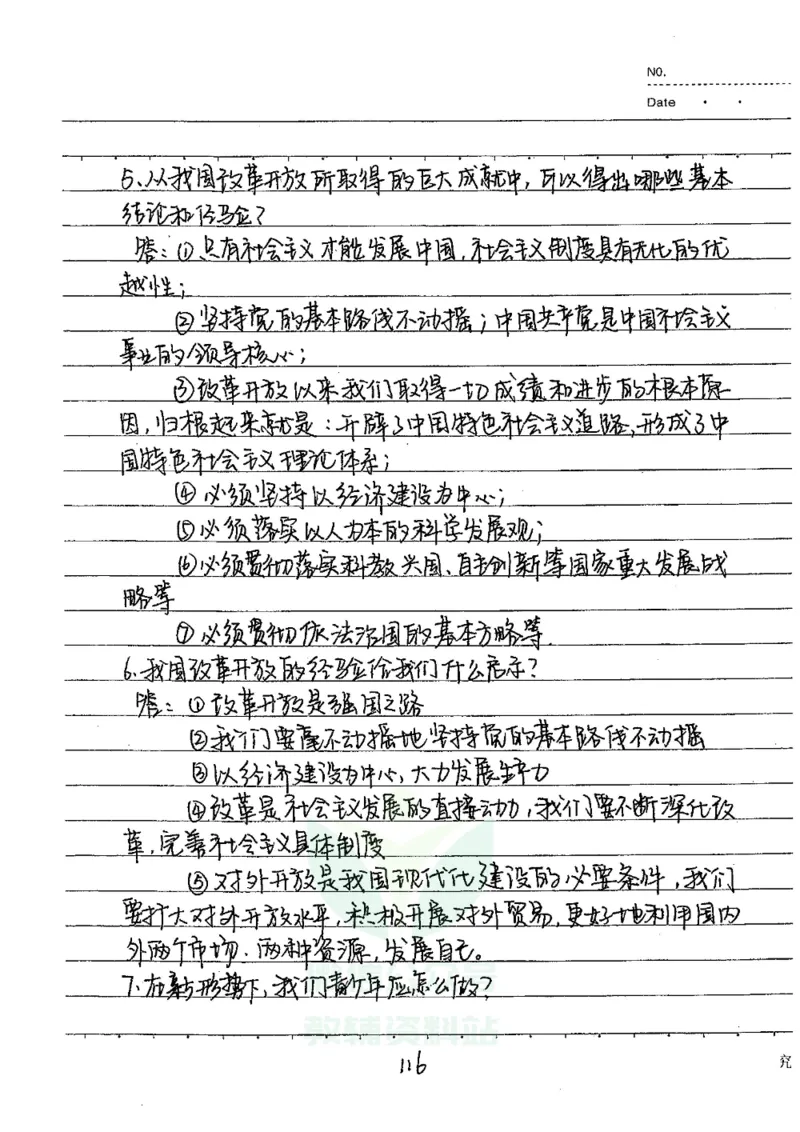 NO.
Date
5.从我国改革开放所取得的巨大成就中,可以得出哪些基本
结论和经验?
答:①只有社会主义才能发展中国,社会主义制度具有无比的优
越性;
②坚持党的基本路线不动摇;中国共产党是中国社会主义
事业的领导核心;
③改革开放以来我们取得一切成绩和进步的根本原
因,归根起来就是:开辟了中国特色社会主义道路,形成了中
国特色社会主义理论体系;
④必须坚持以经济建设为中心;
⑤必须落实以人为本的科学发展观;
⑥必须贯彻落实科教兴国、自主创新等国家重大发展战
略等
⑦必须贯彻依法治国的基本方略等.
6.我国改革开放的经验给我们什么启示?
答:①改革开放是强国之路
②我们要毫不动摇地坚持党的基本路线不动摇
③以经济建设为中心,大力发展生产力
④改革是社会主义发展的直接动力,我们要不断深化改
革,完善社会主义具体制度
⑤对外开放是我国现代化建设的必要条件,我们
要扩大对外开放水平,积极开展对外贸易,更好地利用国内
外两个市场.两种资源,发展自己。
7.在新形势下,我们青少年应怎么做?
教辅资料站
116
究